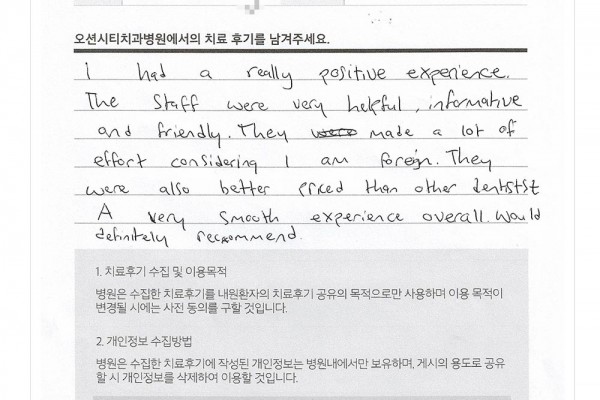 오션시티치과병원에서의 치료 후기를 남겨주세요.
I had a really positive experience.
The staff were very helpful, informative
and friendly. They made a lot of
effort considering I am foreign. They
were also better priced than other dentist
A very smooth experience overall. Would
definitely recommend.
1. 치료후기 수집 및 이용목적
병원은 수집한 치료후기를 내원환자의 치료후기 공유의 목적으로만 사용하며 이용 목적이
변경될 시에는 사전 동의를 구할 것입니다.
2. 개인정보 수집방법
병원은 수집한 치료후기에 작성된 개인정보는 병원내에서만 보유하며, 게시의 용도로 공유
할 시 개인정보를 삭제하여 이용할 것입니다.